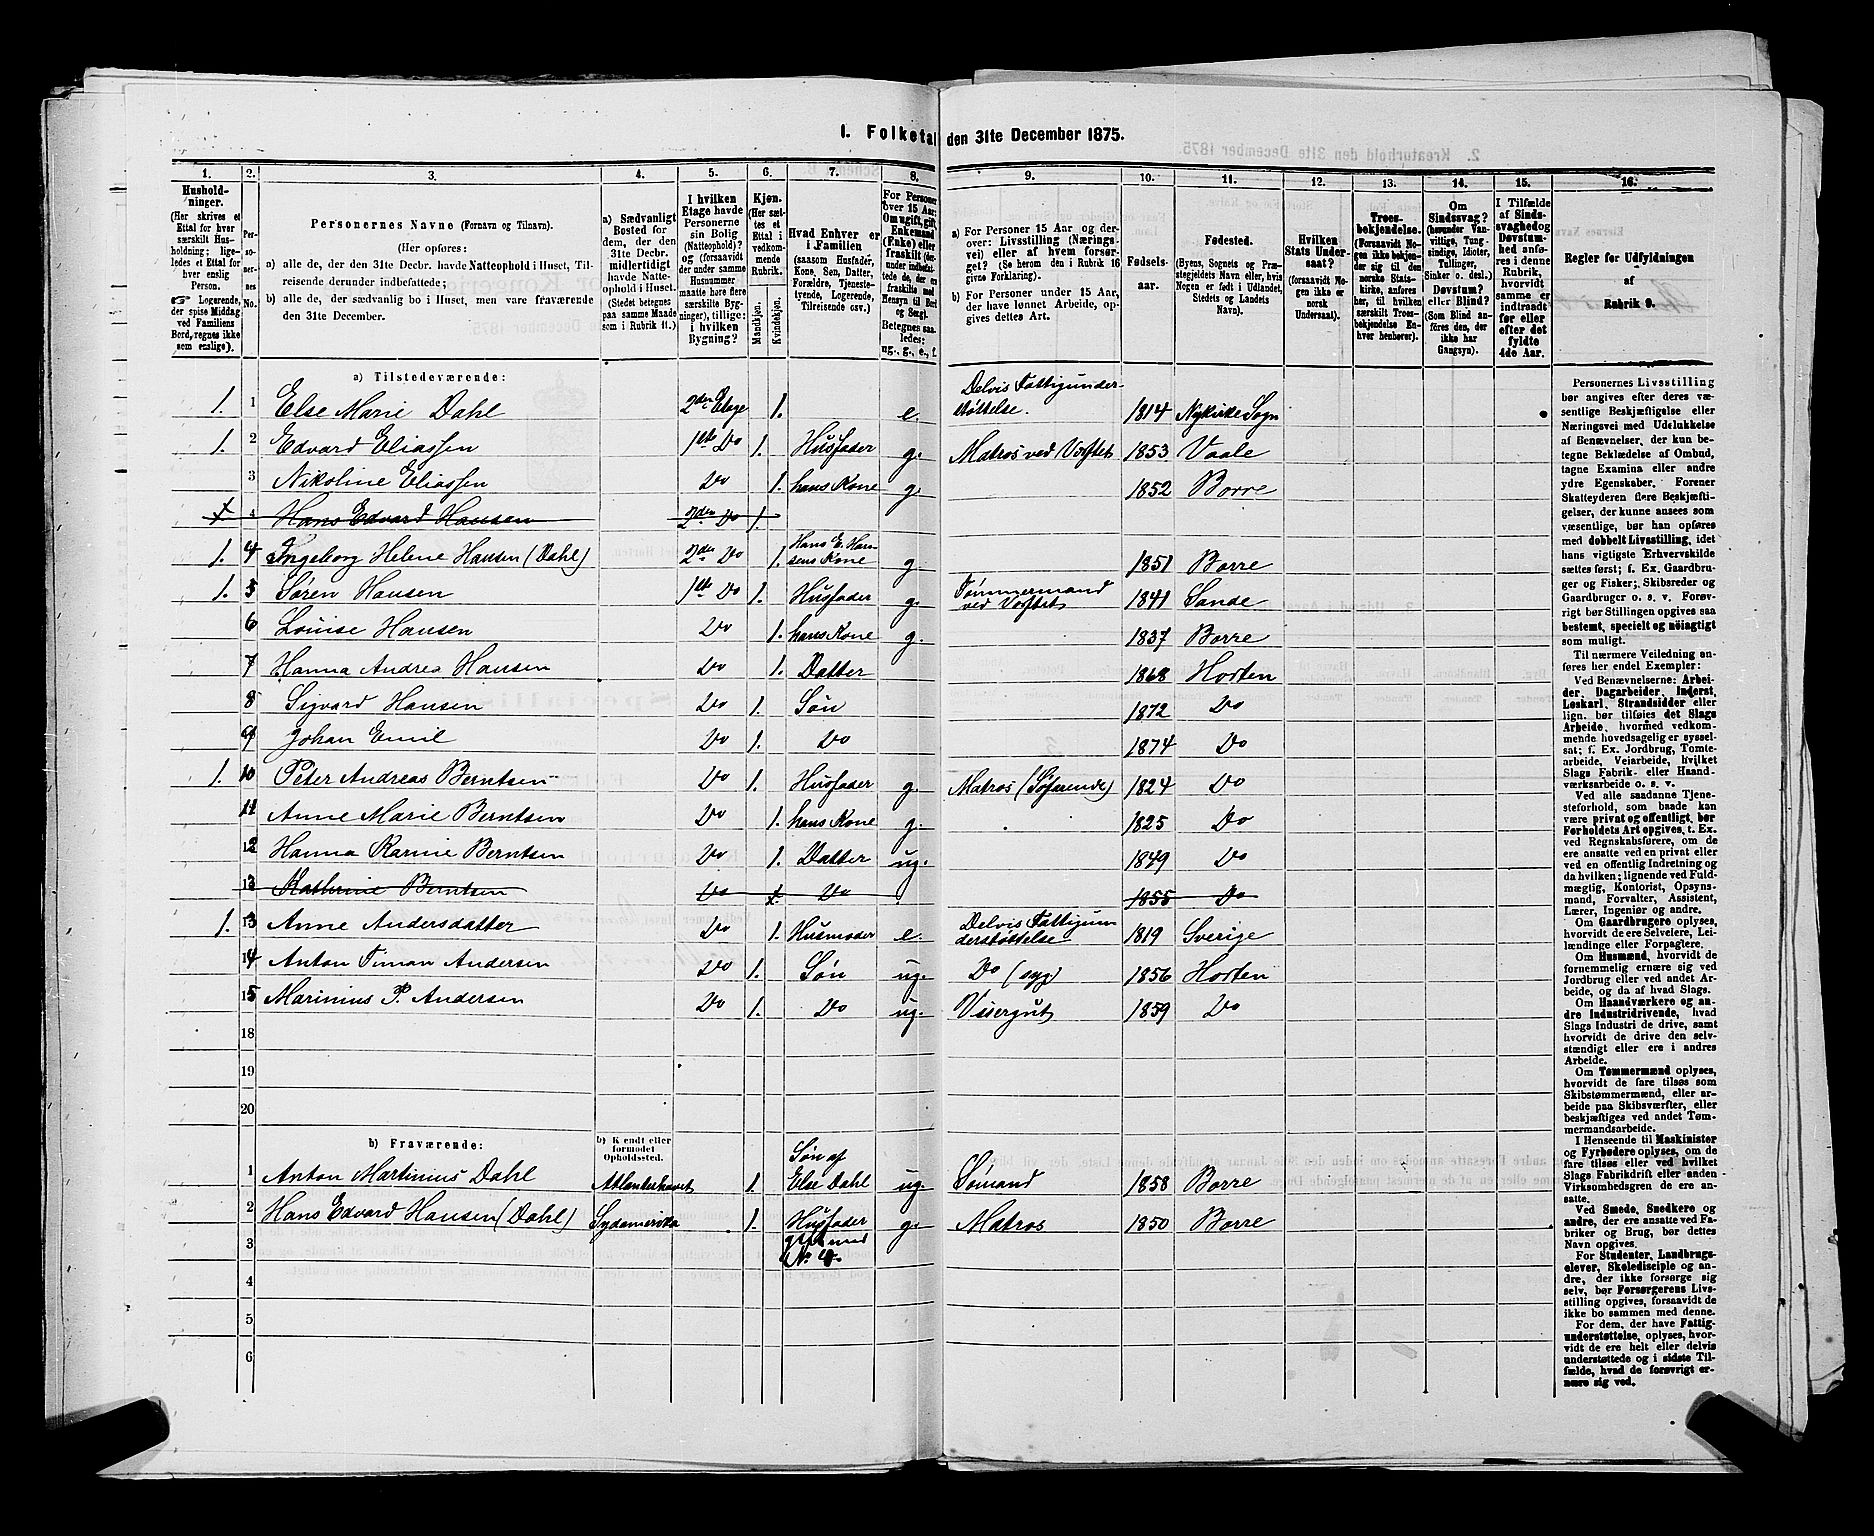 I. Folketal den 31te December 1875.
1. 2. 3. 4. 5. 6. 7. 8. 9. 10. 11. 12. 13. 14. 15. 16.
Husholdninger. (Her skrives et Ettal for hver særskilt Husholdning; ligeledes et Ettal for hver enslig Person. ☞ Logerende, der spise Middag ved Familiens Bord, regnes ikke som enslige).
Personernes No.
Personernes Navne (Fornavn og Tilnavn).
(Her opføres:
a) alle de, der den 31te Decbr. havde Natteophold i Huset, Tilreisende derunder indbefattede;
b) alle de, der sædvanlig bo i Huset, men vare fraværende den 31te December.
a) Sædvanligt Bosted for dem, der den 31te Decbr. midlertidigt havde Natteophold i Huset. (Stedet betegnes paa samme Maade som i Rubrik 11.)
I hvilken Etage havde Personerne sin Bolig (Natteophold)? og (forsaavidt der under samme Husnummer maatte høre flere særskilte Bygninger), tillige: i hvilken Bygning?
Kjøn. (Her sættes et Ettal i vedkommende Rubrik.
Mandkjøn. Kvindekjøn.
Hvad Enhver er i Familien (saasom Husfader, Kone, Søn, Datter, Forældre, Tjenestetyende, Logerende, Tilreisende osv.)
For Personer over 15 Aar: Om ugift, gift, Enkemand (Enke) eller fraskilt (derunder indbefattede de, der ere fraskilte med Hensyn til Bord og Seng). Betegnes saaledes: ug., g., e., f.
a) For Personer 15 Aar og derover: Livsstilling (Næringsvei) eller af hvem forsørget? (Se herom den i Rubrik 16 givne Forklaring).
b) For Personer under 15 Aar, der have lønnet Arbeide, opgives dettes Art.
Fødselsaar.
Fødested. (Byens, Sognets og Præstegjeldets Navn eller, hvis Nogen er født i Udlandet, Stedets og Landets Navn).
Hvilken Stats Undersaat? (forsaavidt Nogen ikke er norsk Undersaat).
Troesbekjendelse. (Forsaavidt Nogen ikke bekjender sig til den norske Statskirke, anføres her, til hvilken særskilt Troesbekjendelse Enhver henhører).
Om Sindssvag? (herunder Vanvittige, Tungsindige, Idioter, Tullinger, Sinker o. desl.). Døvstum? eller Blind? (Som Blind anføres den, der ikke har Gangsyn).
I Tilfælde af Sindssvaghed og Døvstumhed anføres i denne Rubrik, hvorvidt samme er indtraadt før eller efter det fyldte 4de Aar.
Regler for Udfyldningen af Rubrik 9.
a) Tilstedeværende:
1. 1 Else Marie Dahl 2den Etage 1. e. Delvis Fattigunderstøttelse. 1814 Nykirke Sogn
1. 2 Edvard Eliassen 1ste Do 1. Husfader g. Matros ved Værftet 1853 Vaale
3 Nikoline Eliassen Do 1. hans Kone g. 1852 Borre
4 Hans Edvard Hansen 2den Do 1.
1. 4 Ingeborg Helene Hansen (Dahl) 2den Do 1. Hans E. Hansens Kone g. 1851 Borre
1. 5 Søren Hansen 1ste Do 1. Husfader g. Tømmermand ved Værftet 1841 Sande
6 Louise Hansen Do 1. hans Kone g. 1837 Borre
7 Hanna Andrea Hansen Do 1. Datter 1868 Horten
8 Sigvard Hansen Do 1. Søn 1872 Do
9 Johan Emil Do 1. Do 1874 Do
1. 10 Peter Andreas Berntsen Do 1. Husfader g. Matros (Søfarende) 1824 Do
11 Anne Marie Berntsen Do 1. hans Kone g. 1825 Do
12 Hanna Karine Berntsen Do 1. Datter ug. 1849 Do
13 Kathrine Berntsen Do 1. Do 1855 Do
1. 13 Anne Andersdatter Do 1. Husmoder e. Delvis Fattigunderstøttelse 1819 Sverige
14 Anton Timan Andersen Do 1. Søn ug. Do (syg) 1856 Horten
15 Marinius P. Andersen Do 1. Do ug. Visergut 1859 Do
18
19
20
b) Fraværende: b) Kjendt eller formodet Opholdssted.
1 Anton Martinius Dahl Atlanterhavet 1. Søn af Else Dahl ug. Sømand 1858 Borre
2 Hans Edvard Hansen (Dahl) Sydamerika 1. Husfader gift med No. 4. g. Matros 1850 Borre
3
4
5
6
Personernes Livsstilling
bør angives efter deres væsentlige
Beskjæftigelse eller
Næringsvei med Udelukkelse
af Benævnelser, der kun betegne
Beklædelse af Ombud,
tagne Examina eller andre
ydre Egenskaber. Forener
Skatteyderen flere Beskjæftigelser,
der kunne ansees som
væsentlige, bør han opføres
med dobbelt Livsstilling, idet
hans vigtigste Erhvervskilde
sættes først; f. Ex. Gaardbruger
og Fisker; Skibsreder og
Gaardbruger o. s. v. Forøvrigt
bør Stillingen opgives saa
bestemt, specielt og nöiagtigt
som muligt.
Til nærmere Veiledning anføres
her endel Exempler:
Ved Benævnelserne: Arbeider,
Dagarbeider, Inderst,
Løskarl, Strandsidder eller
lign. bør tilføies det Slags
Arbeide, hvormed vedkommende
hovedsagelig er sysselsat;
f. Ex. Jordbrug, Tomtearbeide,
Veiarbeide, hvilket
Slags Fabrik- eller Haandværksarbeide
o. s. v.
Ved alle saadanne Tjenesteforhold,
som baade kan
være privat og offentligt, bør
Forholdets Art opgives, t. Ex.
ved Regnskabsførere, om de
ere ansatte ved en privat eller
ved en offentlig Indretning og
da hvilken; lignende ved Fuldmægtig,
Kontorist, Opsynsmand,
Forvalter, Assistent,
Lærer, Ingeniør og andre.
Om Gaardbrugere oplyses,
hvorvidt de ere Selveiere, Leilændinge
eller Forpagtere.
Om Husmænd, hvorvidt de
fornemmelig ernære sig ved
Jordbrug eller ved andet Arbeide,
og da af hvad Slags.
Om Haandværkere og andre
Industridrivende, hvad
Slags Industri de drive, samt
hvorvidt de drive den selvstændigt
eller ere i andres
Arbeide.
Om Tømmermænd oplyses,
hvorvidt de fare tilsøs som
Skibstømmermænd, eller arbeide
paa Skibsværfter, eller
beskjæftiges ved andet Tømmermandsarbeide.
I Henseende til Maskinister
og Fyrbødere oplyses, om de
fare tilsøs eller ved hvilket
Slags Fabrikdrift eller anden
Virksomhedsgren de ere ansatte.
Ved Smede, Snedkere og
andre, der ere ansatte ved Fabriker
og Brug, bør dettes
Navn opgives.
For Studenter, Landbrugselever,
Skoledisciple og andre,
der ikke forsørge sig
selv, bør Forsørgerens Livsstilling
opgives, forsaavidt de
ikke bo sammen med denne.
For dem, der have Fattigunderstøttelse,
oplyses, hvorvidt
de ere helt eller delvis
understøttede og i sidste Tilfælde,
hvad de forøvrigt ernære
sig ved.